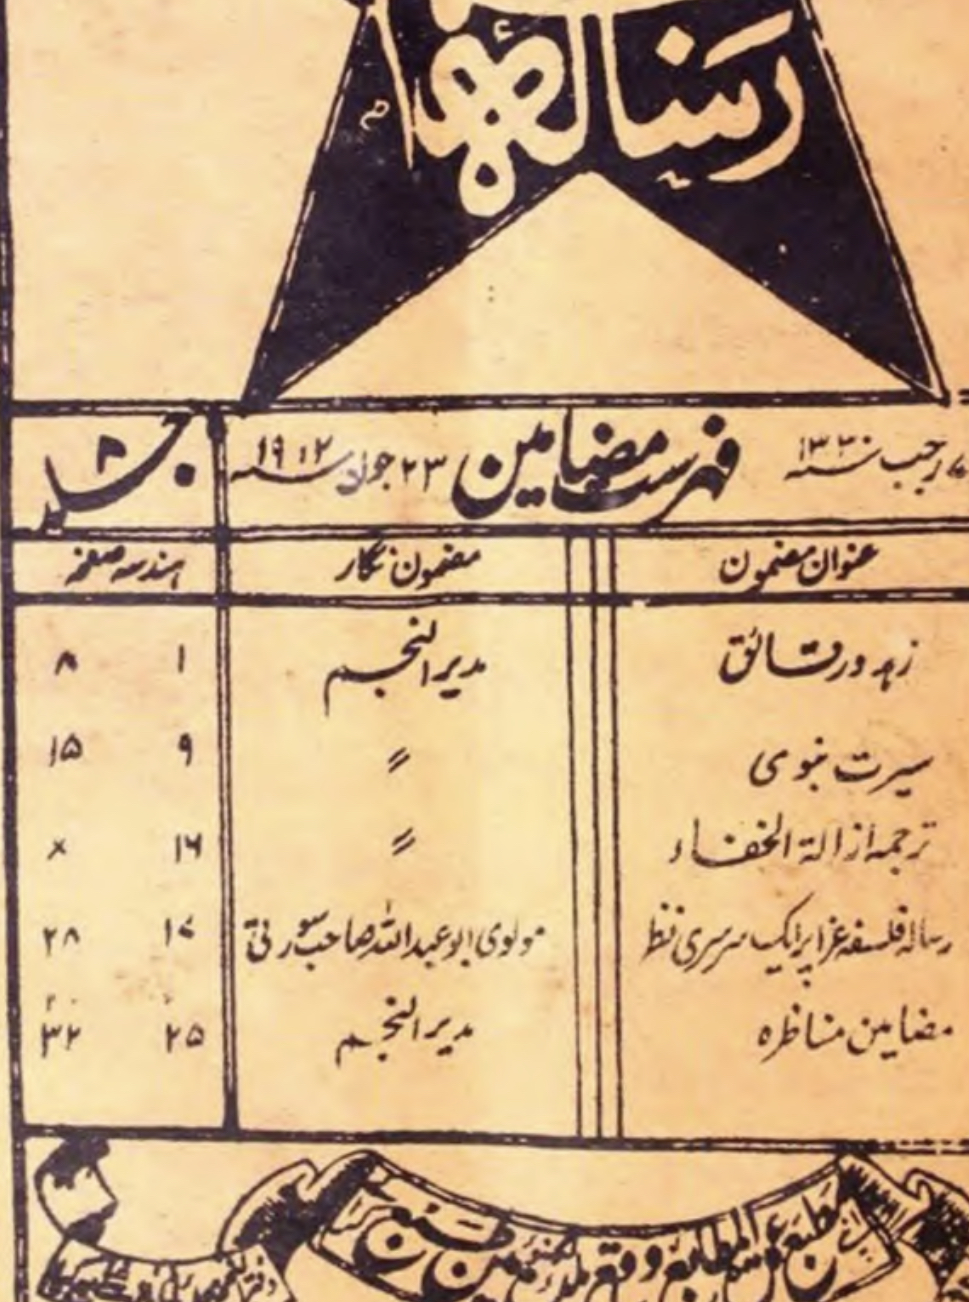 رسالهٔا
رجب ۱۳۳۰ سنہ فہرست مضامین ۲۳ جولا ۱۹۱۲ سنہ جلد ۸
عنوان مضمون مضمون نگار ہندسہ صفحہ
زہد ورقائق مدیر النجم ۱ ۸
سیرت نبوی 〃 ۹ ۱۵
ترجمہ ازالۃ الخفاء 〃 ۱۶ ×
رسالہ فلسفہ عزا پر ایک سرسری نظر مولوی ابوعبداللہ صاحب سورتی ۱۷ ۲۸
مضامین مناظرہ مدیر النجم ۲۵ ۳۲
مطبع عمدۃ المطابع واقع